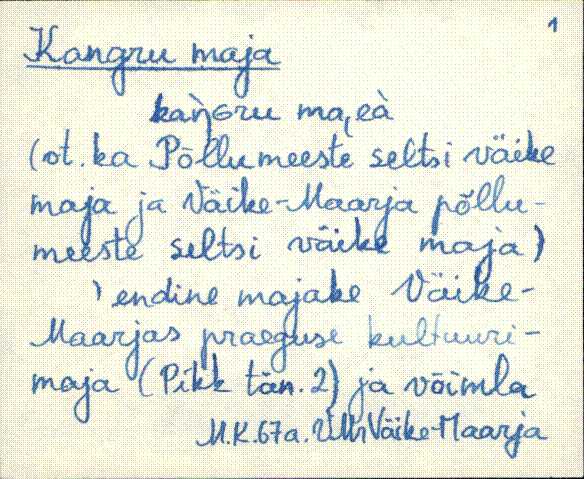 1
Kangru maja
(ot. ka Põllumeeste seltsi väike
maja ja Väike-Maarja põllu-
meeste seltsi väike maja)
endine majake Väike-
Maarjas praeguse kultuuri-
maja (Pikk tän. 2) ja võimla
M.K. 67a. Väike-Maarja